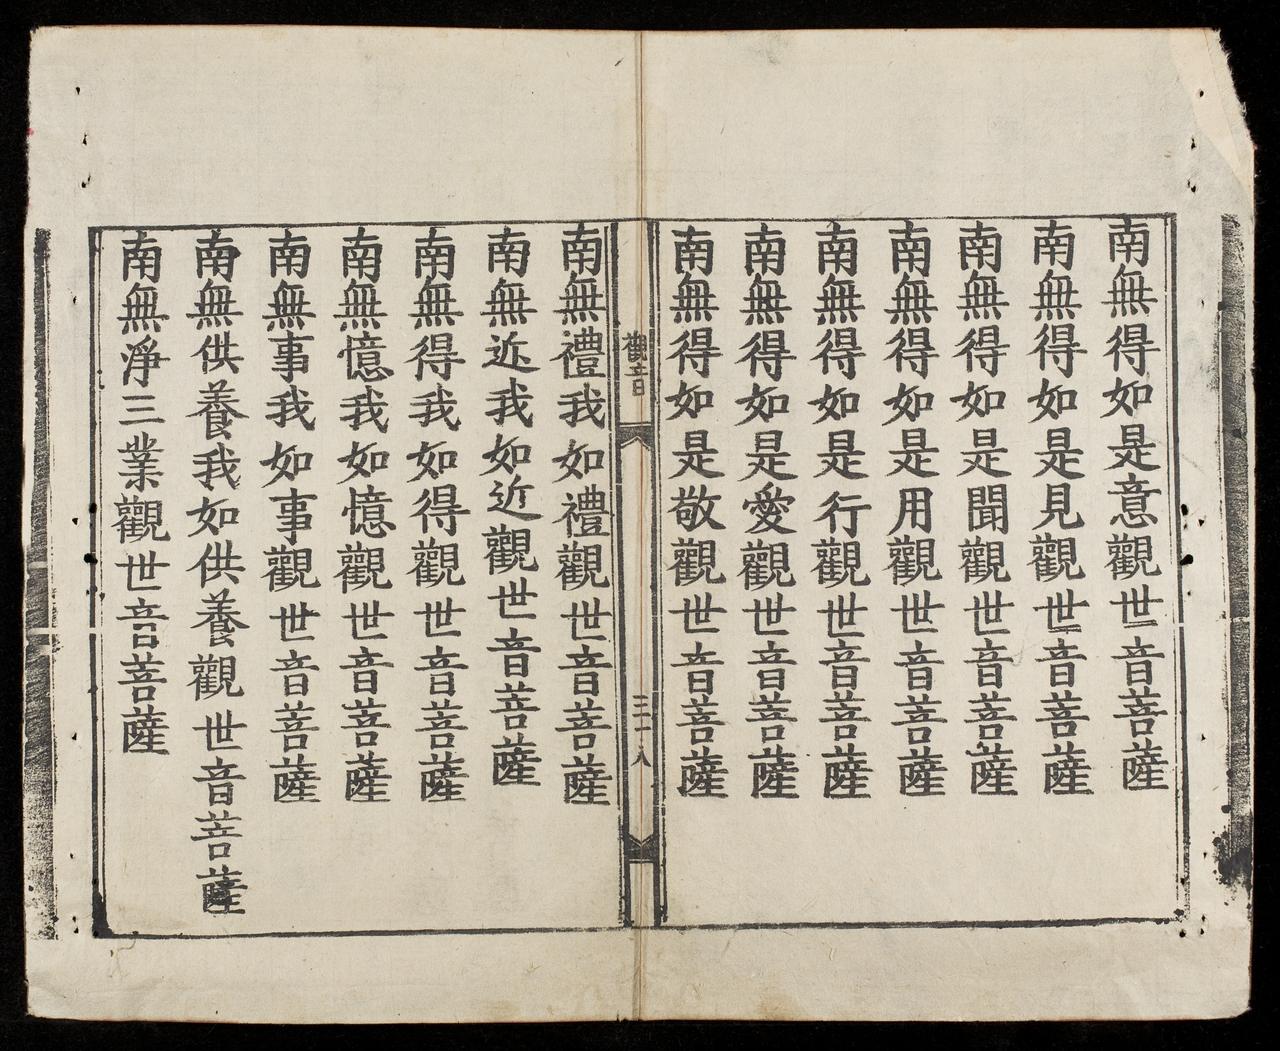 南無得如是意觀世音菩薩
南無得如是見觀世音菩薩
南無得如是聞觀世音菩薩
南無得如是用觀世音菩薩
南無得如是行觀世音菩薩
南無得如是愛觀世音菩薩
南無得如是敬觀世音菩薩
觀音
三十八
南無禮我如禮觀世音菩薩
南無近我如近觀世音菩薩
南無得我如得觀世音菩薩
南無憶我如憶觀世音菩薩
南無事我如事觀世音菩薩
南無供養我如供養觀世音菩薩
南無淨三業觀世音菩薩